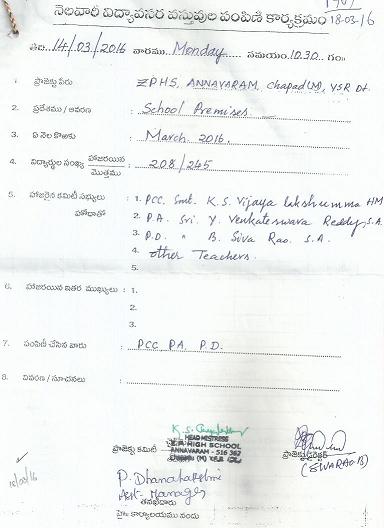 నెలవారీ విద్యావసర వస్తువుల పంపిణి కార్యక్రమం 18-03-16
తేది. 14/03/2016 వారము. Monday సమయం. 10.30. గం॥
1. ప్రాజెక్టు పేరు : ZPHS, ANNAVARAM, Chapad(M), YSR Dt.
2. ప్రదేశము / ఆవరణ : School Premises.
3. ఏ నెల కొఱకు : March 2016.
4. విద్యార్థుల సంఖ్య హాజరయిన / మొత్తము : 208/245
5. హాజరైన కమిటీ సభ్యులు : 1. PCC. Smt. K.S. Vijaya lakshumma HM
హోదాతో 2. P.A. Sri. Y. Venkateswara Reddy, S.A.
3. P.D. " B. Siva Rao. S.A.
4. other Teachers.
5.
6. హాజరయిన ఇతర ముఖ్యులు : 1.
2.
3.
7. పంపిణీ చేసిన వారు : PCC, PA, P.D.
8. వివరణ / సూచనలు :
HEAD MISTRESS
Z.P. HIGH SCHOOL
ANNAVARAM - 516 362
ప్రాజెక్టు కమిటీ ప్రాజెక్టు డైరెక్టర్
(ESWARAO.B)
P. Dhanalakshmi
Asst. Manager
తనఖీదారు
హై. కార్యాలయము నందు